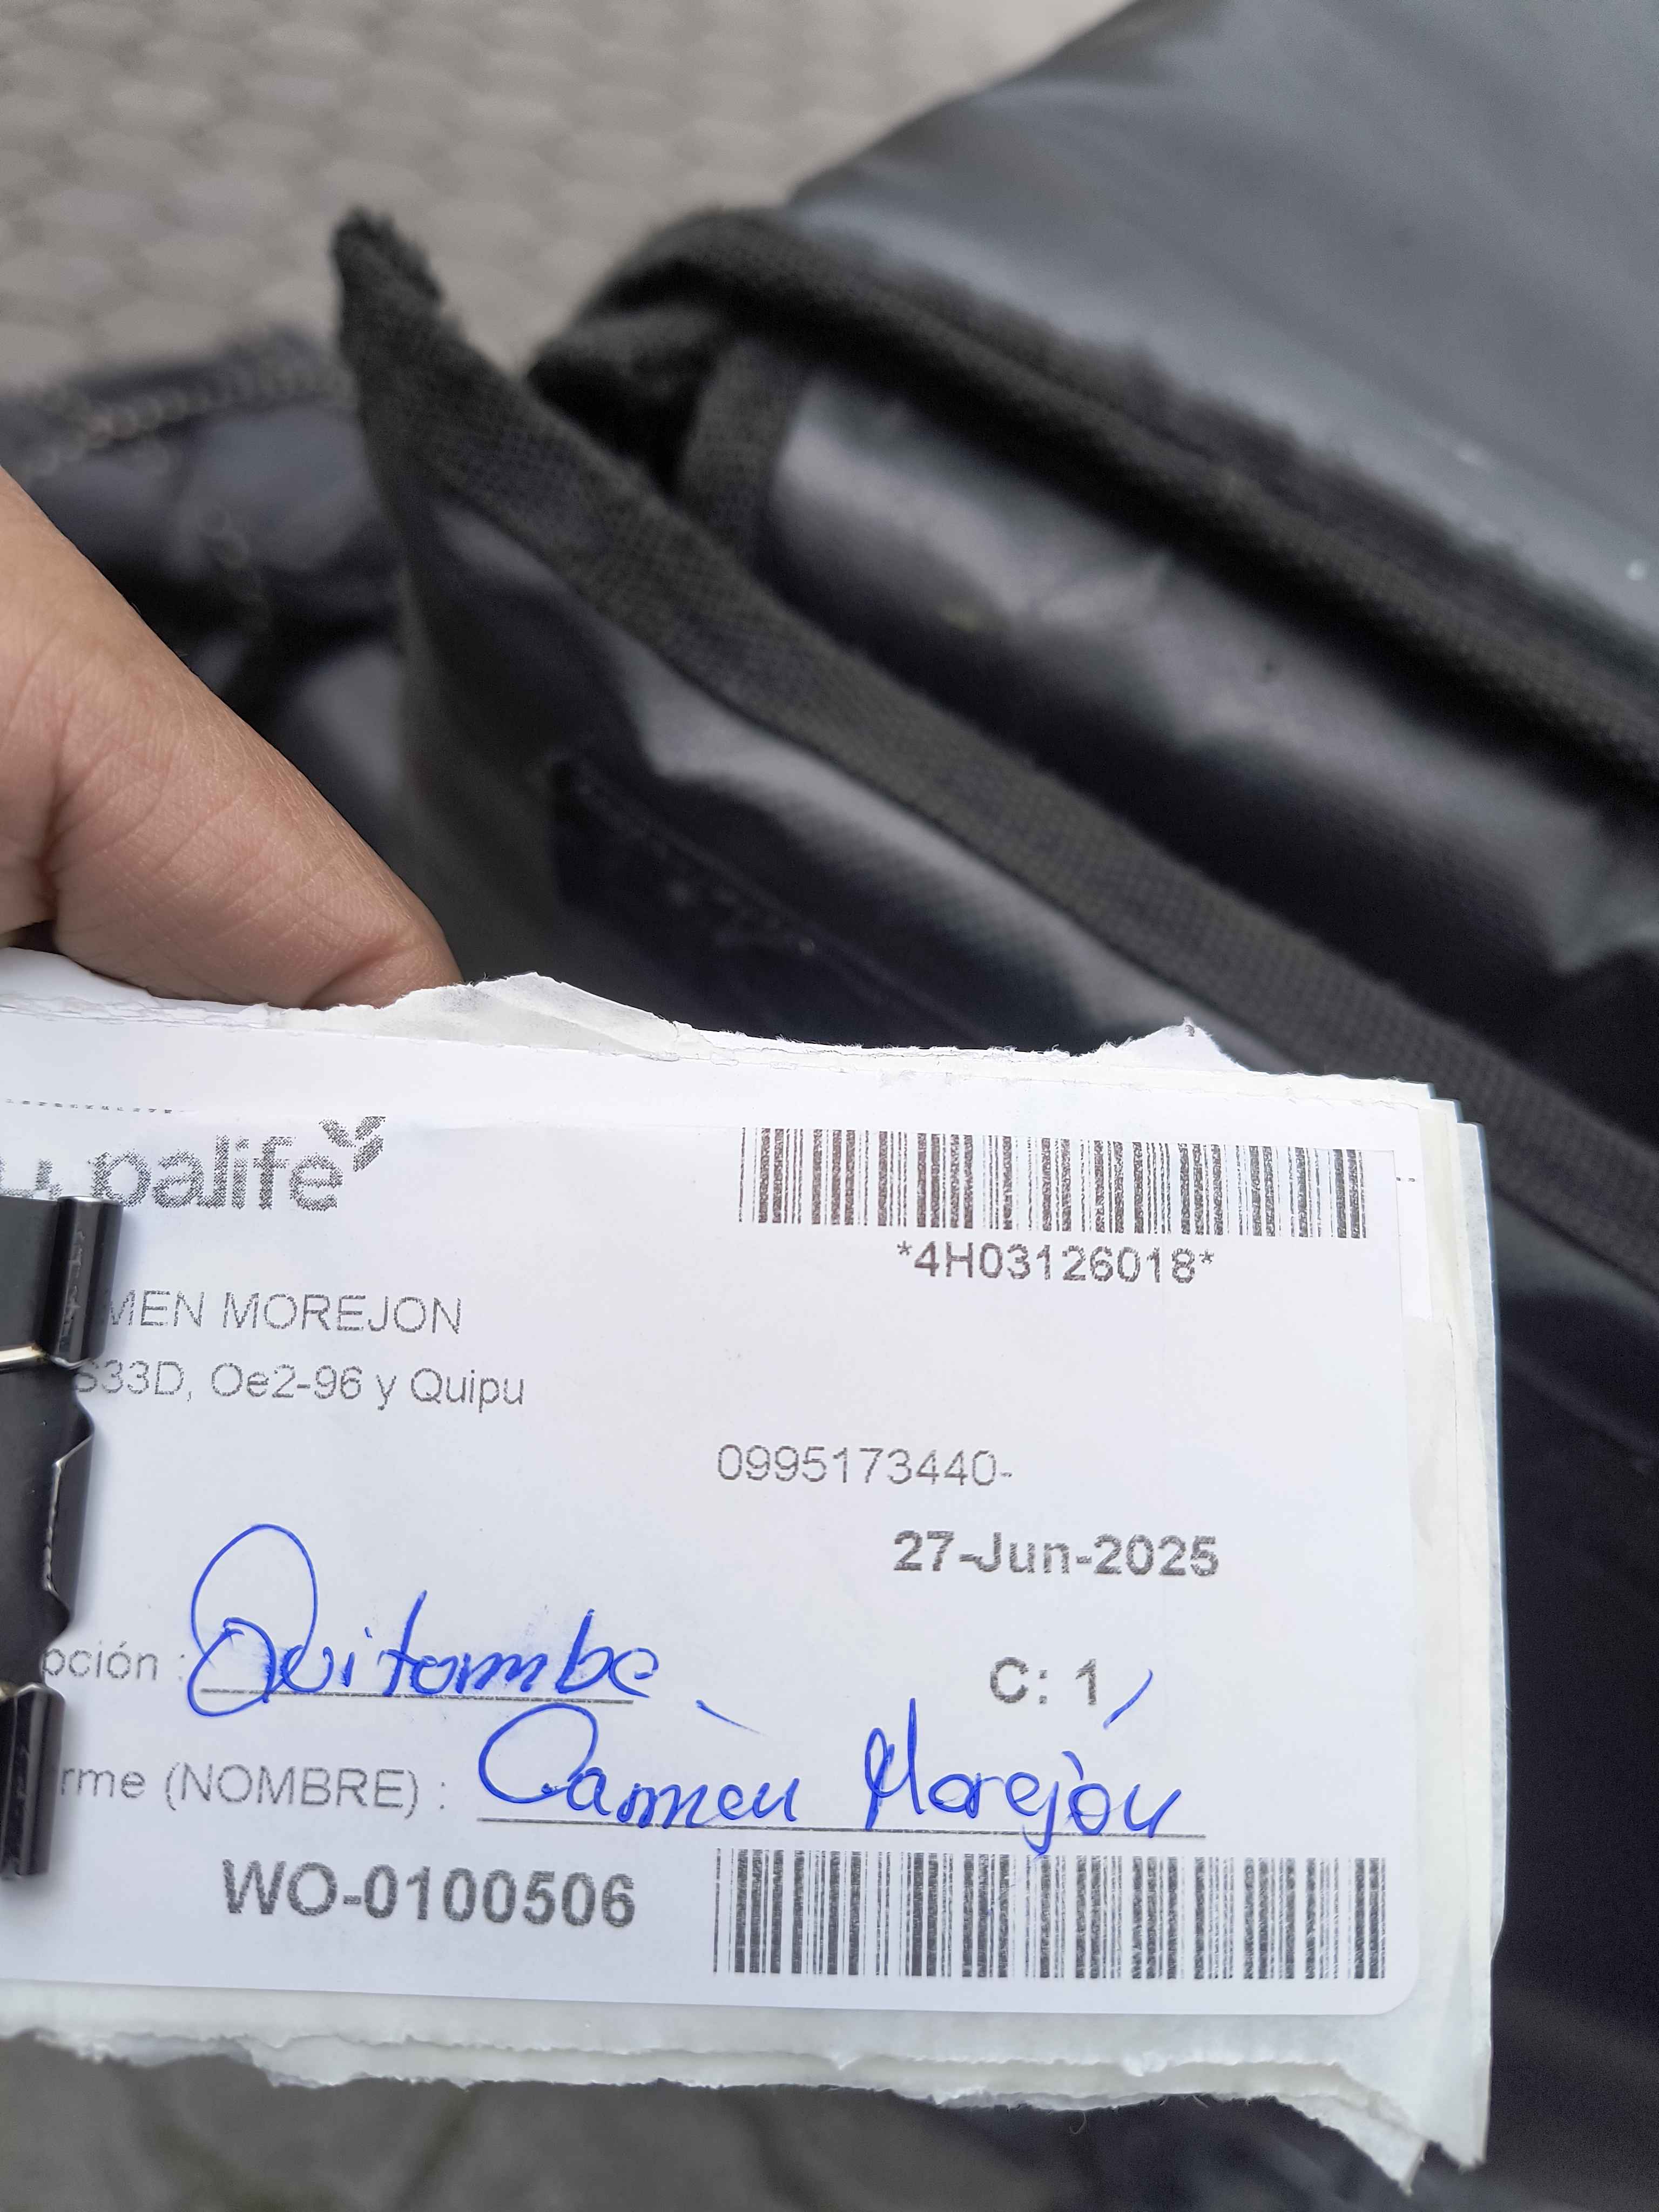 palife
*4H03126018*
MEN MOREJON
S33D, Oe2-96 y Quipu
0995173440-
27-Jun-2025
pción : Quitumbe
C: 1
rme (NOMBRE) : Carmen Morejón
WO-0100506